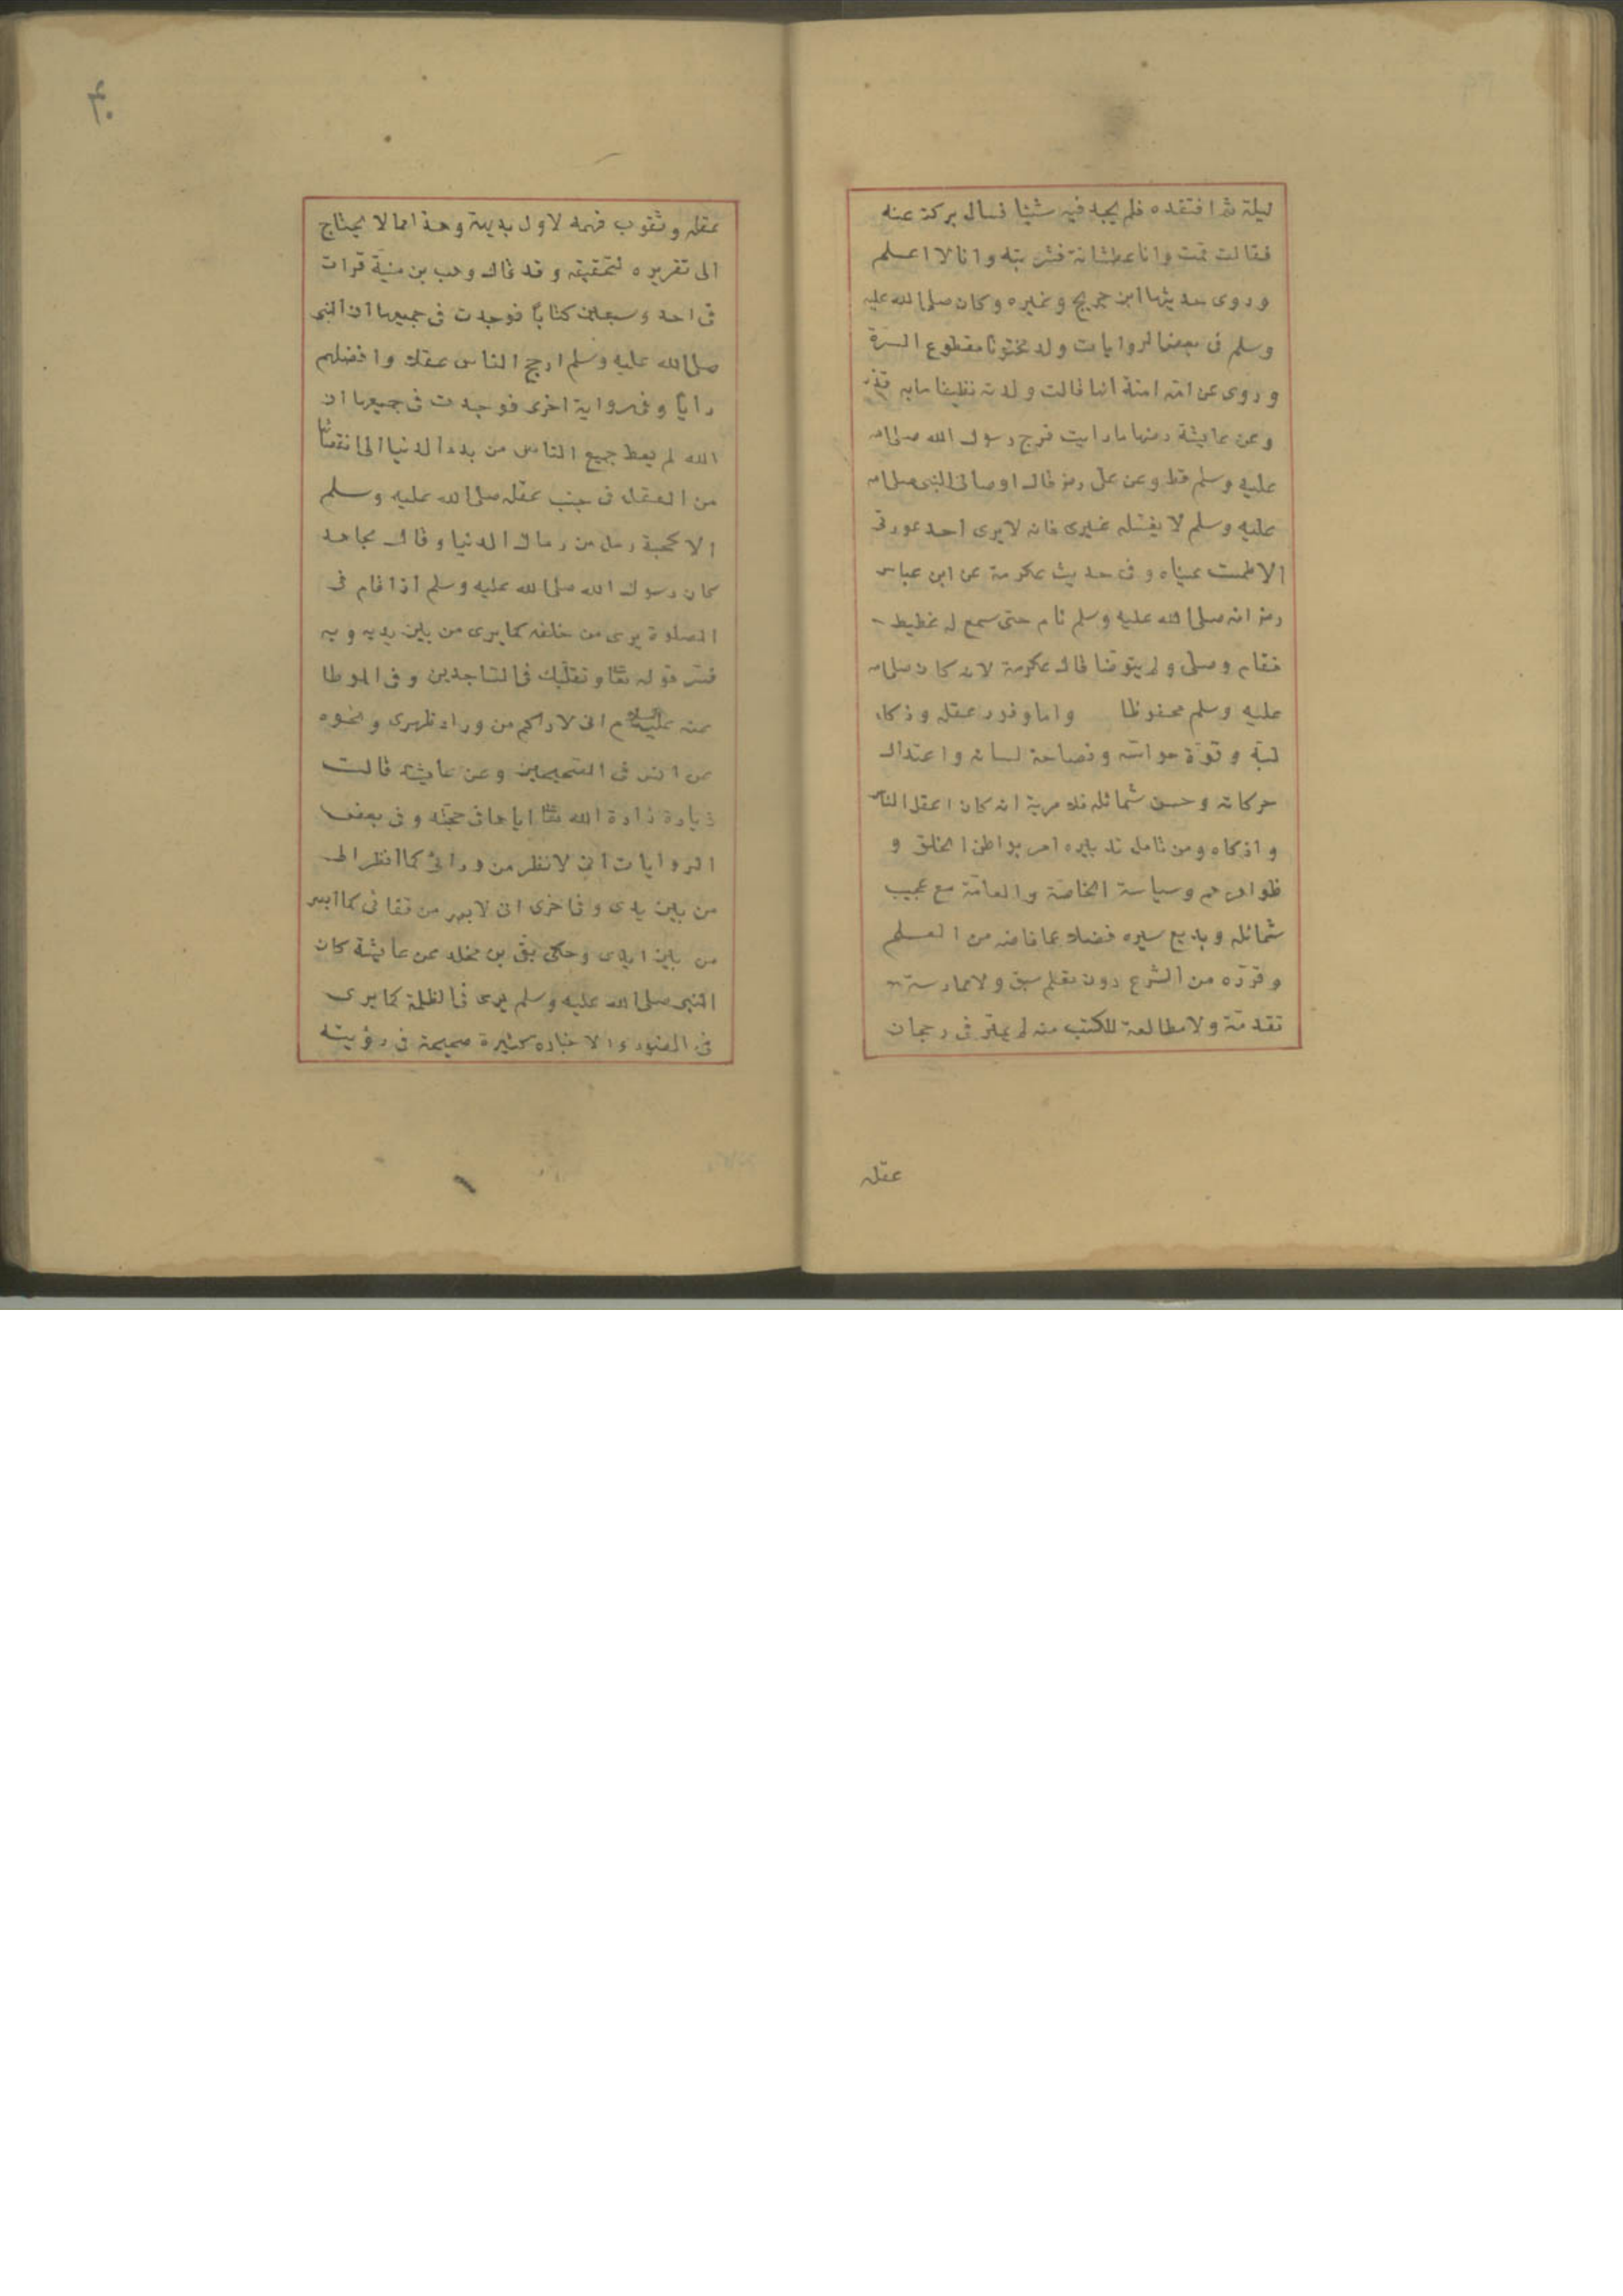 ليلة ثم افتقده فلم يجد فيه شيئا فسال بركة عنه
فقالت قمت وانا عطشانة فشربته وانا لا اعلم
وروى حديثها ابن جريج وغيره وكان صلى الله عليه
وسلم فى بعض الروايات ولد مختونا مقطوع السرة
وروى عن امه امنة انها قالت ولدته نظيفا ما به قذر
وعن عايشة رضها ما رايت فرج رسول الله صلى الله
عليه وسلم قط وعن على رضه قال اوصانى النبى صلى الله
عليه وسلم لا يغسله غيرى فانه لا يرى احد عورتى
الا طمست عيناه وفى حديث عكرمة عن ابن عباس
رضه انه صلى الله عليه وسلم نام حتى سمع له غطيط
فقام وصلى ولم يتوضا قال عكرمة لانه كان صلى الله
عليه وسلم محفوظا واما وفور عقله وذكاء
لبه وقوة حواسه وفصاحة لسانه واعتدال
حركاته وحسن شمائله فلا مرية انه كان اعقل الناس
واذكاه ومن تامل تدبيره امر بواطن الخلق و
ظواهرهم وسياسة الخاصة والعامة مع عجيب
شمائله وبديع سيره فضلا عما فاضه من العلم
وقرره من الشرع دون تعلم سبق ولا ممارسة
تقدمة ولا مطالعة للكتب منه لم يمتر فى رجحان
عقله
۴۰
عقله وثقوب فهمه لاول بديهة وهذا مما لا يحتاج
الى تقريره لتحقيقه وقد قال وهب بن منبة قرات
فى احد وسبعين كتابا فوجدت فى جميعها ان النبى
صلى الله عليه وسلم ارجح الناس عقلا وافضلهم
رايا وفى رواية اخرى فوجدت فى جميعها ان
الله لم يعط جميع الناس من بدء الدنيا الى انقضائها
من العقل فى جنب عقله صلى الله عليه وسلم
الا كحبة رمل من رمال الدنيا وقال مجاهد
كان رسول الله صلى الله عليه وسلم اذا قام فى
الصلوة يرى من خلفه كما يرى من بين يديه وبه
فسر قوله تعا وتقلبك فى الساجدين وفى الموطا
عنه عليه السلام انى لاراكم من وراء ظهرى ونحوه
عن انس فى الصحيحين وعن عايشة قالت
زيادة زادة الله تعا اياها فى حجته وفى بعض
الروايات انى لانظر من ورائى كما انظر الى
من بين يدى وفى اخرى انى لابصر من قفائى كما ابصر
من بين ايدى وحكى بقى بن مخلد عن عايشة كان
النبى صلى الله عليه وسلم يرى فى الظلمة كما يرى
فى الضوء والاخبار كثيرة صحيحة فى رؤيته